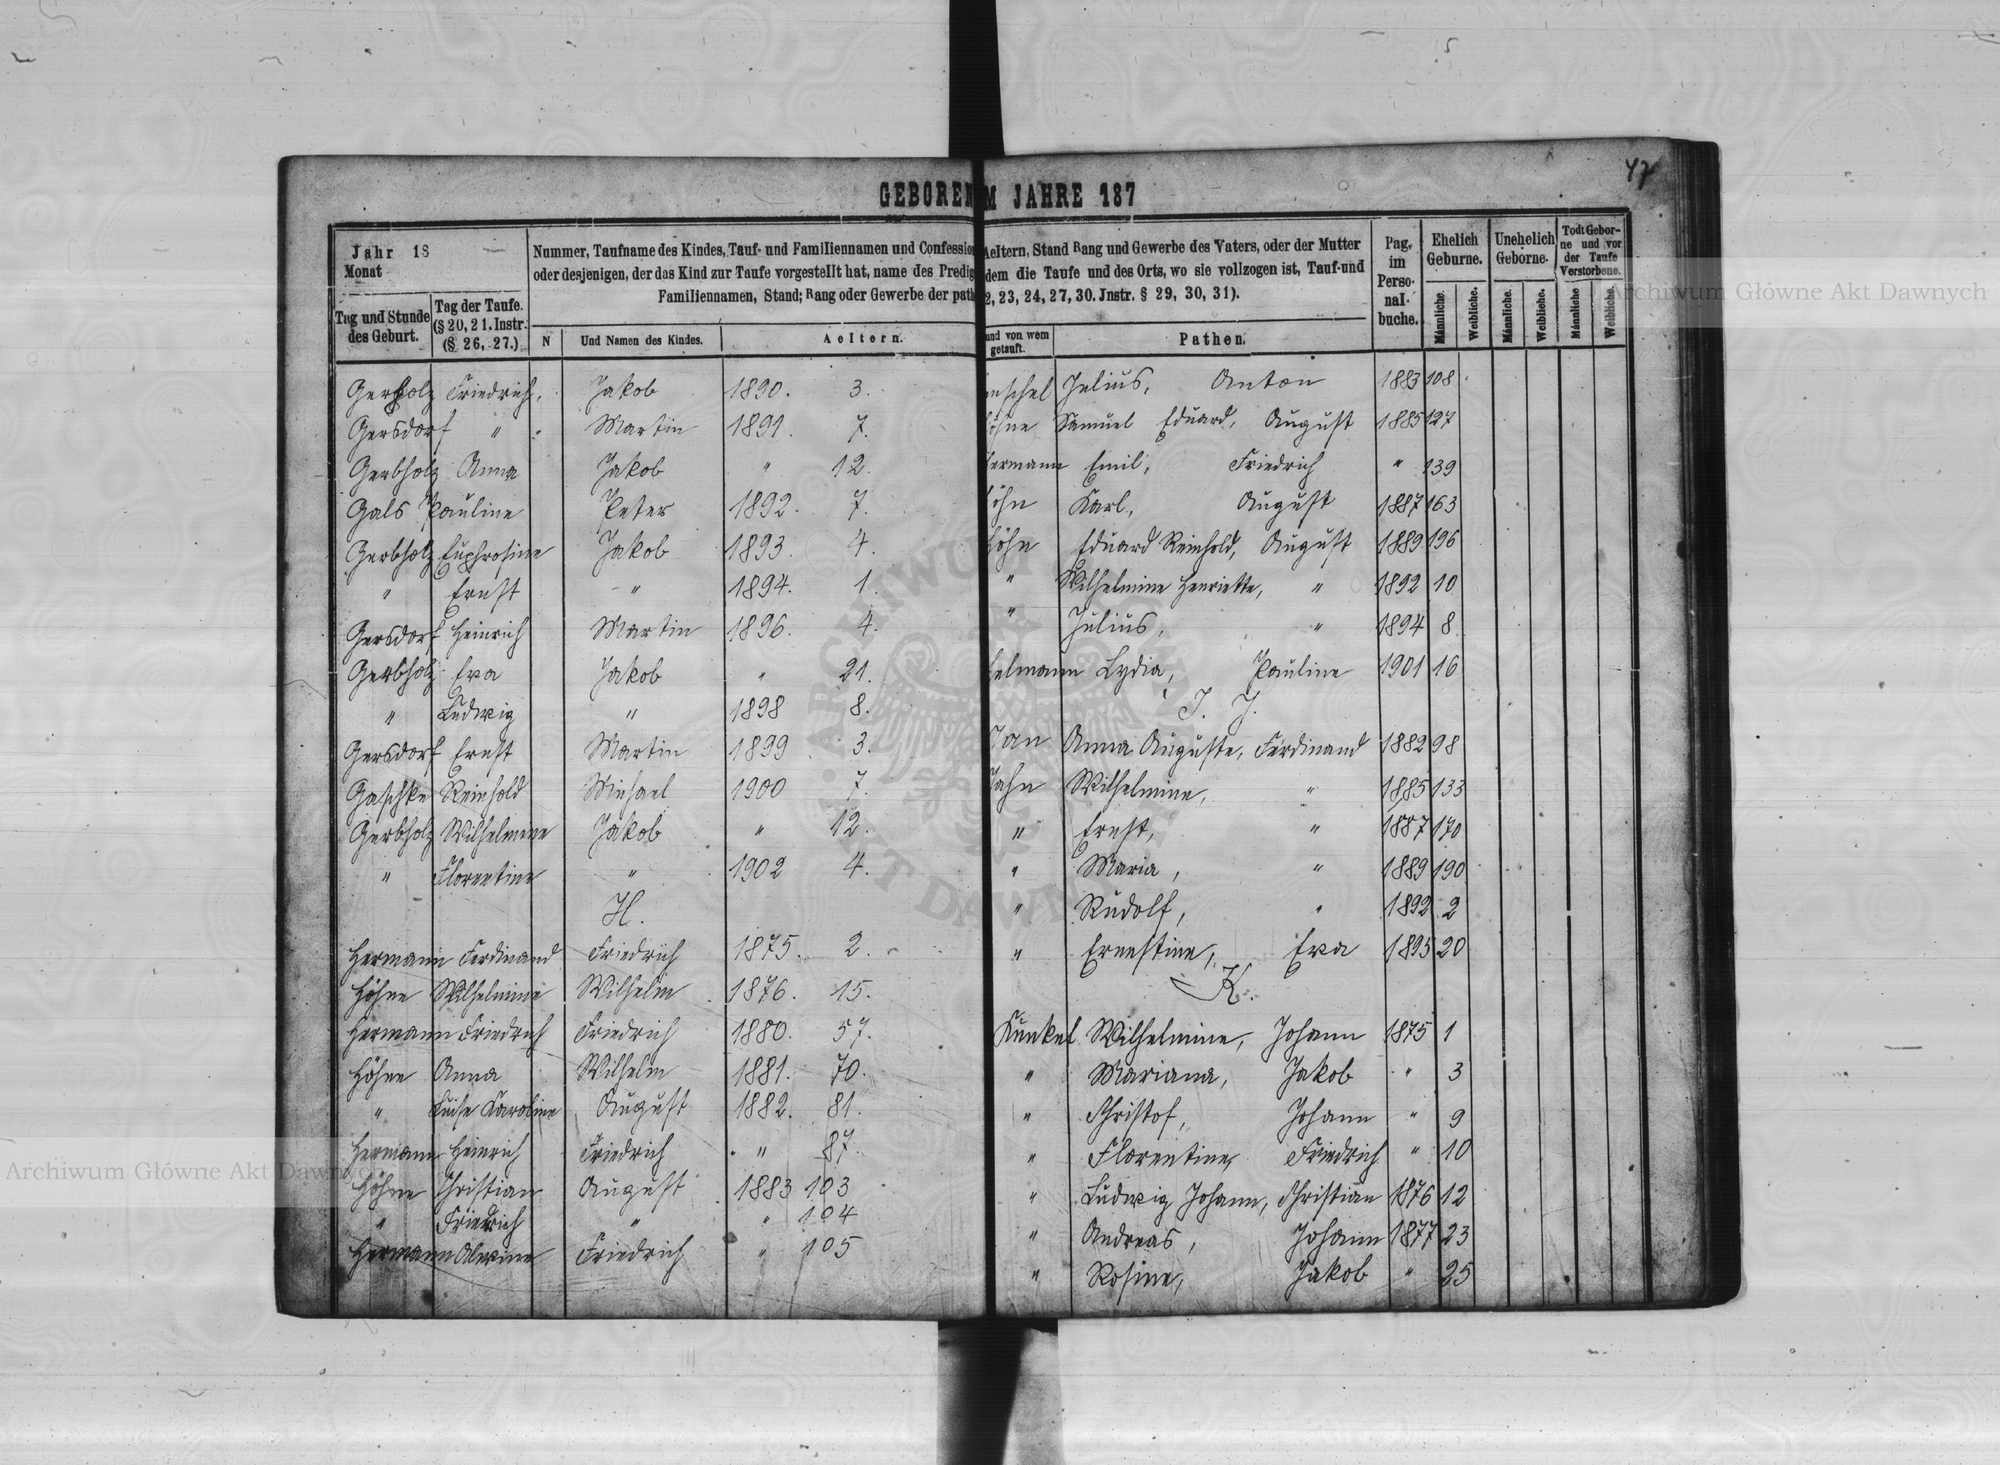 47
GEBOREN M JAHRE 187
Jahr 18
Monat
Tag und Stunde des Geburt.
Tag der Taufe. (§ 20, 21. Instr. (§ 26, 27.)
Nummer, Taufname des Kindes, Tauf- und Familiennamen und Confession
oder desjenigen, der das Kind zur Taufe vorgestellt hat, name des Predig
Familiennamen, Stand; Rang oder Gewerbe der path
N
Und Namen des Kindes.
Aeltern.
Gerbholz Friedrich, Jakob 1890. 3.
Gersdorf " Martin 1891. 7.
Gerbholz Anna Jakob " 12.
Gals Pauline Peter 1892. 7.
Gerbholz Euphrosine Jakob 1893. 4.
" Ernst " 1894. 1.
Gersdorf Heinrich Martin 1896. 4.
Gerbholz Eva Jakob " 21.
" Ludwig " 1898 8.
Gersdorf Ernst Martin 1899 3.
Gaschke Reinhold Michael 1900 7.
Gerbholz Wilhelmine Jakob " 12.
" Florentine " 1902 4.
H.
Hermann Ferdinand Friedrich 1875. 2.
Höhne Wilhelmine Wilhelm 1876. 15.
Hermann Friedrich Friedrich 1880. 57.
Höhne Anna Wilhelm 1881. 70.
" Luise Karoline August 1882. 81.
Hermann Heinrich Friedrich " 87.
Höhne Christian August 1883 103
" Friedrich " " 104
Hermann Alwine Friedrich " 105
Aeltern, Stand Rang und Gewerbe des Vaters, oder der Mutter
dem die Taufe und des Orts, wo sie vollzogen ist, Tauf-und
2, 23, 24, 27, 30. Jnstr. § 29, 30, 31).
und von wem getauft.
Pathen.
Pag. im Perso-nal-buche.
Ehelich Geburne.
Unehelich Geborne.
Todt Gebor-ne und vor der Taufe Verstorbene.
Männliche. Weibliche. Männliche. Weibliche. Männliche Weibliche.
nschel Julius, Anton 1883 108
öhne Samuel Eduard, August 1885 127
ermann Emil, Friedrich " 139
öhn Karl, August 1887 163
Höhn Eduard Reinhold, August 1889 196
" Wilhelmine Henriette, " 1892 10
" Julius, " 1894 8
elmann Lydia, Pauline 1901 16
I. J.
Jan Anna Auguste, Ferdinand 1882 98
Jahn Wilhelmine, " 1885 133
" Ernst, " 1887 170
" Maria, " 1889 190
" Rudolf, " 1892 2
" Ernestine, Eva 1895 20
K.
Kunkel Wilhelmine, Johann 1875 1
" Mariana, Jakob " 3
" Christof, Johann " 9
" Florentine, Friedrich " 10
" Ludwig Johann, Christian 1876 12
" Andreas, Johann 1877 23
" Rosine, Jakob " 25
Archiwum Główne Akt Dawnych
Archiwum Główne Akt Dawnych
ARCHIWUM
AKT DAWN